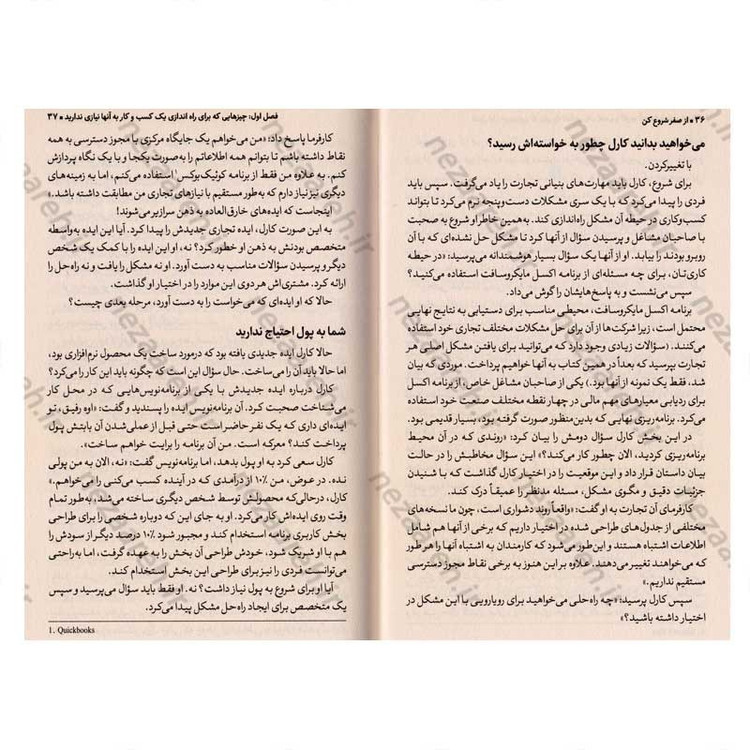 ۳۶ ● از صفر شروع کن
می‌خواهید بدانید کارل چطور به خواسته‌اش رسید؟
با تغییر کردن.
برای شروع، کارل باید مهارت‌های بنیانی تجارت را یاد می‌گرفت. سپس باید
فردی را پیدا می‌کرد که با یک سری مشکلات دست‌وپنجه نرم می‌کرد تا بتواند
کسب‌وکاری در حیطه آن مشکل راه‌اندازی کند. به‌همین خاطر او شروع به صحبت
با صاحبان مشاغل و پرسیدن سؤال از آنها کرد تا مشکل حل نشده‌ای که با آن
روبرو بودند را بیابد. او از آنها یک سؤال بسیار هوشمندانه می‌پرسید: «در حیطه
کاری‌تان، برای چه مسئله‌ای از برنامه اکسل مایکروسافت استفاده می‌کنید؟»
سپس می‌نشست و به پاسخ‌هایشان را گوش می‌داد.
برنامه اکسل مایکروسافت، محیطی مناسب برای دستیابی به نتایج نهایی
محتمل است، زیرا شرکت‌ها از آن برای حل مشکلات مختلف تجاری خود استفاده
می‌کنند. (سؤالات زیادی وجود دارد که می‌توانید برای یافتن مشکل اصلی هر
تجارت بپرسید که بعداً در همین کتاب به آنها خواهیم پرداخت. موردی که بیان
شد، فقط یک نمونه از آنها بود.) یکی از صاحبان مشاغل خاص، از برنامه اکسل
برای ردیابی معیارهای مهم مالی در چهار نقطه مختلف صنعت خود استفاده
می‌کرد. برنامه‌ریزی نهایی که بدین‌منظور صورت گرفته بود، بسیار قدیمی بود.
در این بخش کارل سؤال دومش را بیان کرد: «روندی که در آن محیط
برنامه‌ریزی کردید، الان چطور کار می‌کند؟» این سؤال مخاطبش را در حالت
بیان داستان قرار داد و این موقعیت را در اختیار کارل گذاشت که با شنیدن
جزئیات دقیق و مگوی مشکل، مسئله مدنظر را عمیقاً درک کند.
کارفرمای آن تجارت به او گفت: «واقعاً روند دشواری است، چون ما نسخه‌های
مختلفی از جدول‌های طراحی شده در اختیار داریم که برخی از آنها هم شامل
اطلاعات اشتباه هستند و این‌طور می‌شود که کارمندان به اشتباه آنها را هر طور
که می‌خواهند تغییر می‌دهند. علاوه بر این هنوز به برخی نقاط مجوز دسترسی
مستقیم نداریم.»
سپس کارل پرسید: «چه راه‌حلی می‌خواهید برای رویارویی با این مشکل در
اختیار داشته باشید؟»
فصل اول: چیزهایی که برای راه اندازی یک کسب و کار به آنها نیازی ندارید ● ۳۷
کارفرما پاسخ داد: «من می‌خواهم یک جایگاه مرکزی با مجوز دسترسی به همه
نقاط داشته باشم تا بتوانم همه اطلاعاتم را به‌صورت یکجا و با یک نگاه پردازش
کنم. به علاوه من فقط از برنامه کوئیک‌بوکس¹ استفاده می‌کنم، اما به زمینه‌های
دیگری نیز نیاز دارم که به‌طور مستقیم با نیازهای تجاری من مطابقت داشته باشد.»
اینجاست که ایده‌های خارق‌العاده به ذهن سرازیر می‌شوند!
به این صورت کارل، ایده تجاری جدیدش را پیدا کرد. آیا این ایده به‌واسطه
متخصص بودنش به ذهن او خطور کرد؟ نه، او این ایده را با کمک یک شخص
دیگر و پرسیدن سؤالات مناسب به دست آورد. او نه مشکل را یافت و نه راه‌حل را
ارائه کرد. مشتری‌اش هر دوی این موارد را در اختیار او گذاشت.
حالا که او ایده‌ای که می‌خواست را به دست آورد، مرحله بعدی چیست؟
شما به پول احتیاج ندارید
حالا کارل ایده جدیدی یافته بود که درمورد ساخت یک محصول نرم‌افزاری بود،
اما حالا باید آن را می‌ساخت. حال سؤال این است که چگونه باید این کار را می‌کرد؟
کارل درباره ایده جدیدش با یکی از برنامه‌نویس‌هایی که در محل کار
می‌شناخت صحبت کرد. آن برنامه‌نویس ایده را پسندید و گفت: «اوه رفیق، تو
ایده‌ای داری که یک نفر حاضر است حتی قبل از عملی‌شدن آن بابتش پول
پرداخت کند؟ معرکه است. من آن برنامه را برایت خواهم ساخت.»
کارل سعی کرد به او پول بدهد، اما برنامه‌نویس گفت: «نه، الان به من پولی
نده. در عوض، من ۱۰٪ از درآمدی که در آینده کسب می‌کنی را می‌خواهم.»
کارل، درحالی‌که محصولش توسط شخص دیگری ساخته می‌شد، به‌طور تمام
وقت روی ایده‌اش کار می‌کرد. او به جای این که دوباره شخصی را برای طراحی
بخش کاربری برنامه استخدام کند و مجبور شود ۱۰٪ درصد دیگر از سودش را
هم با او شریک شود، خودش طراحی آن بخش را به عهده گرفت، اما به‌راحتی
می‌توانست فردی را نیز برای طراحی این بخش استخدام کند.
آیا او برای شروع به پول نیاز داشت؟ نه. او فقط باید سؤال می‌پرسید و سپس
یک متخصص برای ایجاد راه‌حل مشکل پیدا می‌کرد.
1. Quickbooks
nezaareh.ir